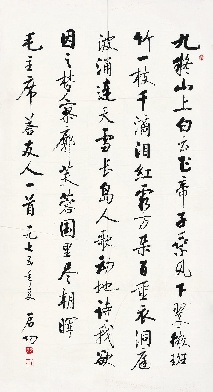 九嶷山上白云飞帝子乘风下翠微斑
竹一枝千滴泪红霞万朵百重衣洞庭
波涌连天雪长岛人歌动地诗我欲
因之梦寥廓芙蓉国里尽朝晖
毛主席答友人一首一九七五年夏启功